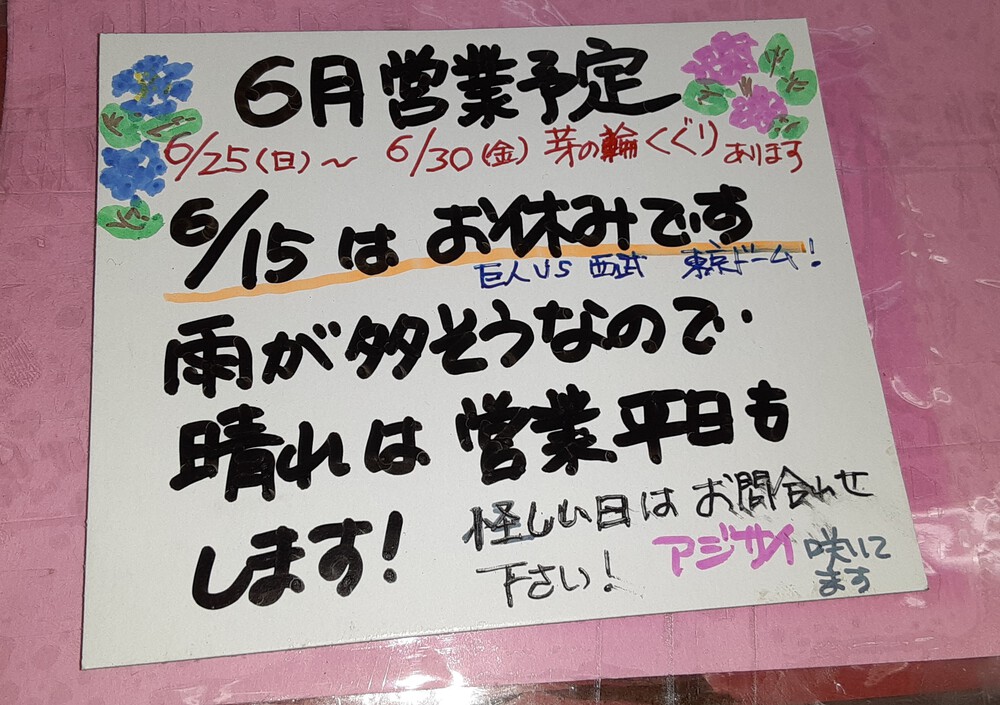 6月営業予定
6/25(日)〜 6/30(金) 芽の輪くぐりあります
6/15はお休みです
巨人VS西武 東京ドーム!
雨が多そうなので・
晴れは営業平日も
します!
怪しい日はお問合わせ
下さい!
アジサイ咲いて
ます